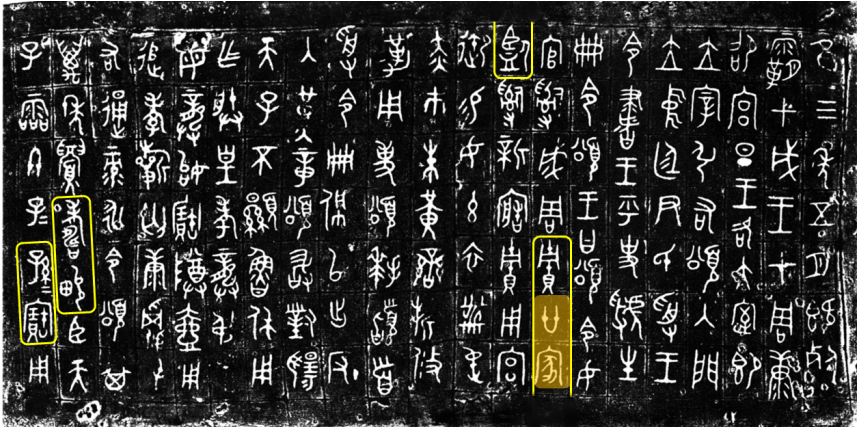 隹三年五月既死
霸甲戌王才周康
卲宮旦王各大室即
立宰弘右頌入門
立中廷尹氏受王
令書王乎史虢生
冊令頌王曰頌令女
官司成周貯廿家
監司新造貯用宮
御易女玄衣黹屯
赤巿朱黃鑾旂攸
勒用事頌拜稽首
受令冊佩以出反
入堇章頌敢對揚
天子不顯魯休用
乍朕皇考龏弔皇
母龏始寶尊壺用
追孝祈匄康龢屯
右通彔永令頌其
萬年眉壽畯臣天
子霝冬子孫寶用